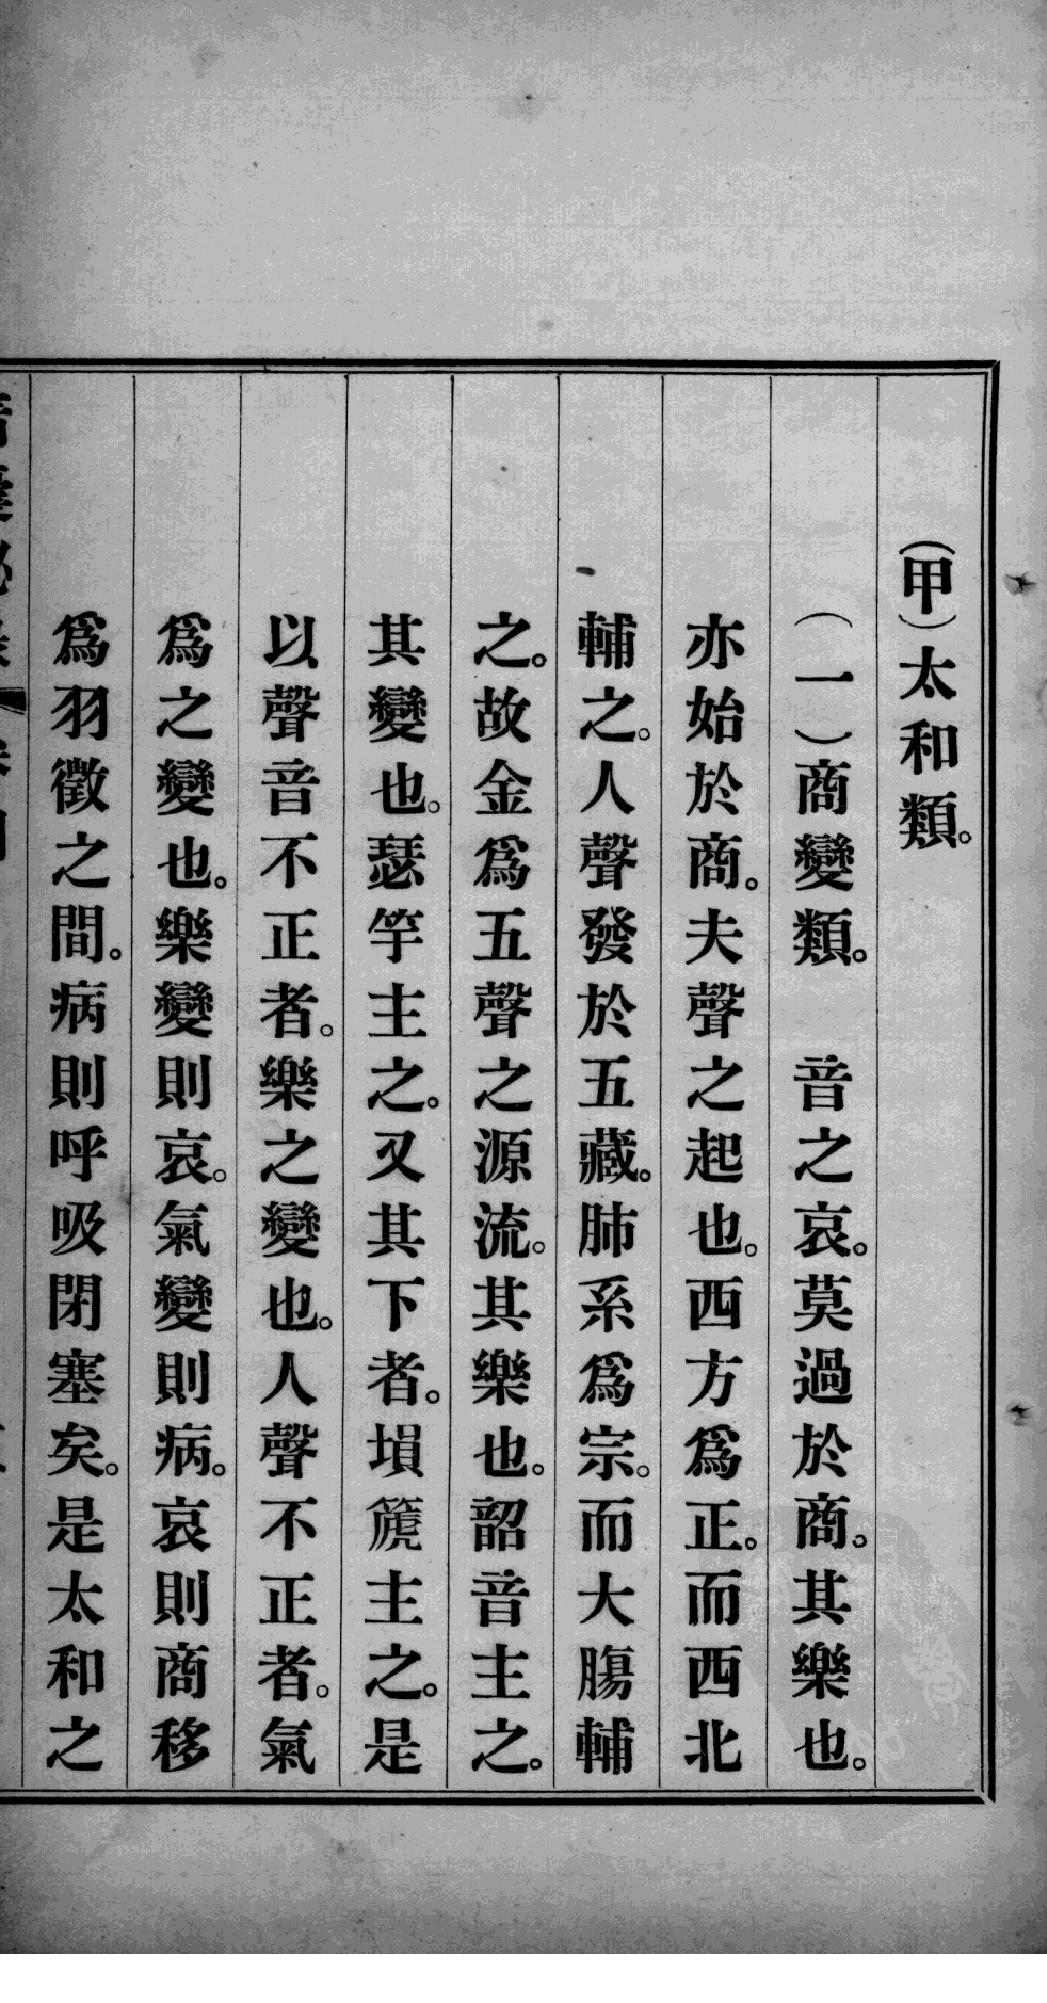 (甲)太和類。
(一)商變類。　音之哀。莫過於商。其樂也。
亦始於商。夫聲之起也。西方爲正。而西北
輔之。人聲發於五藏。肺系爲宗。而大腸輔
之。故金爲五聲之源流。其樂也。韶音主之。
其變也。瑟竽主之。又其下者。塤篪主之。是
以聲音不正者。樂之變也。人聲不正者。氣
爲之變也。樂變則哀。氣變則病。哀則商移
爲羽徵之間。病則呼吸閉塞矣。是太和之